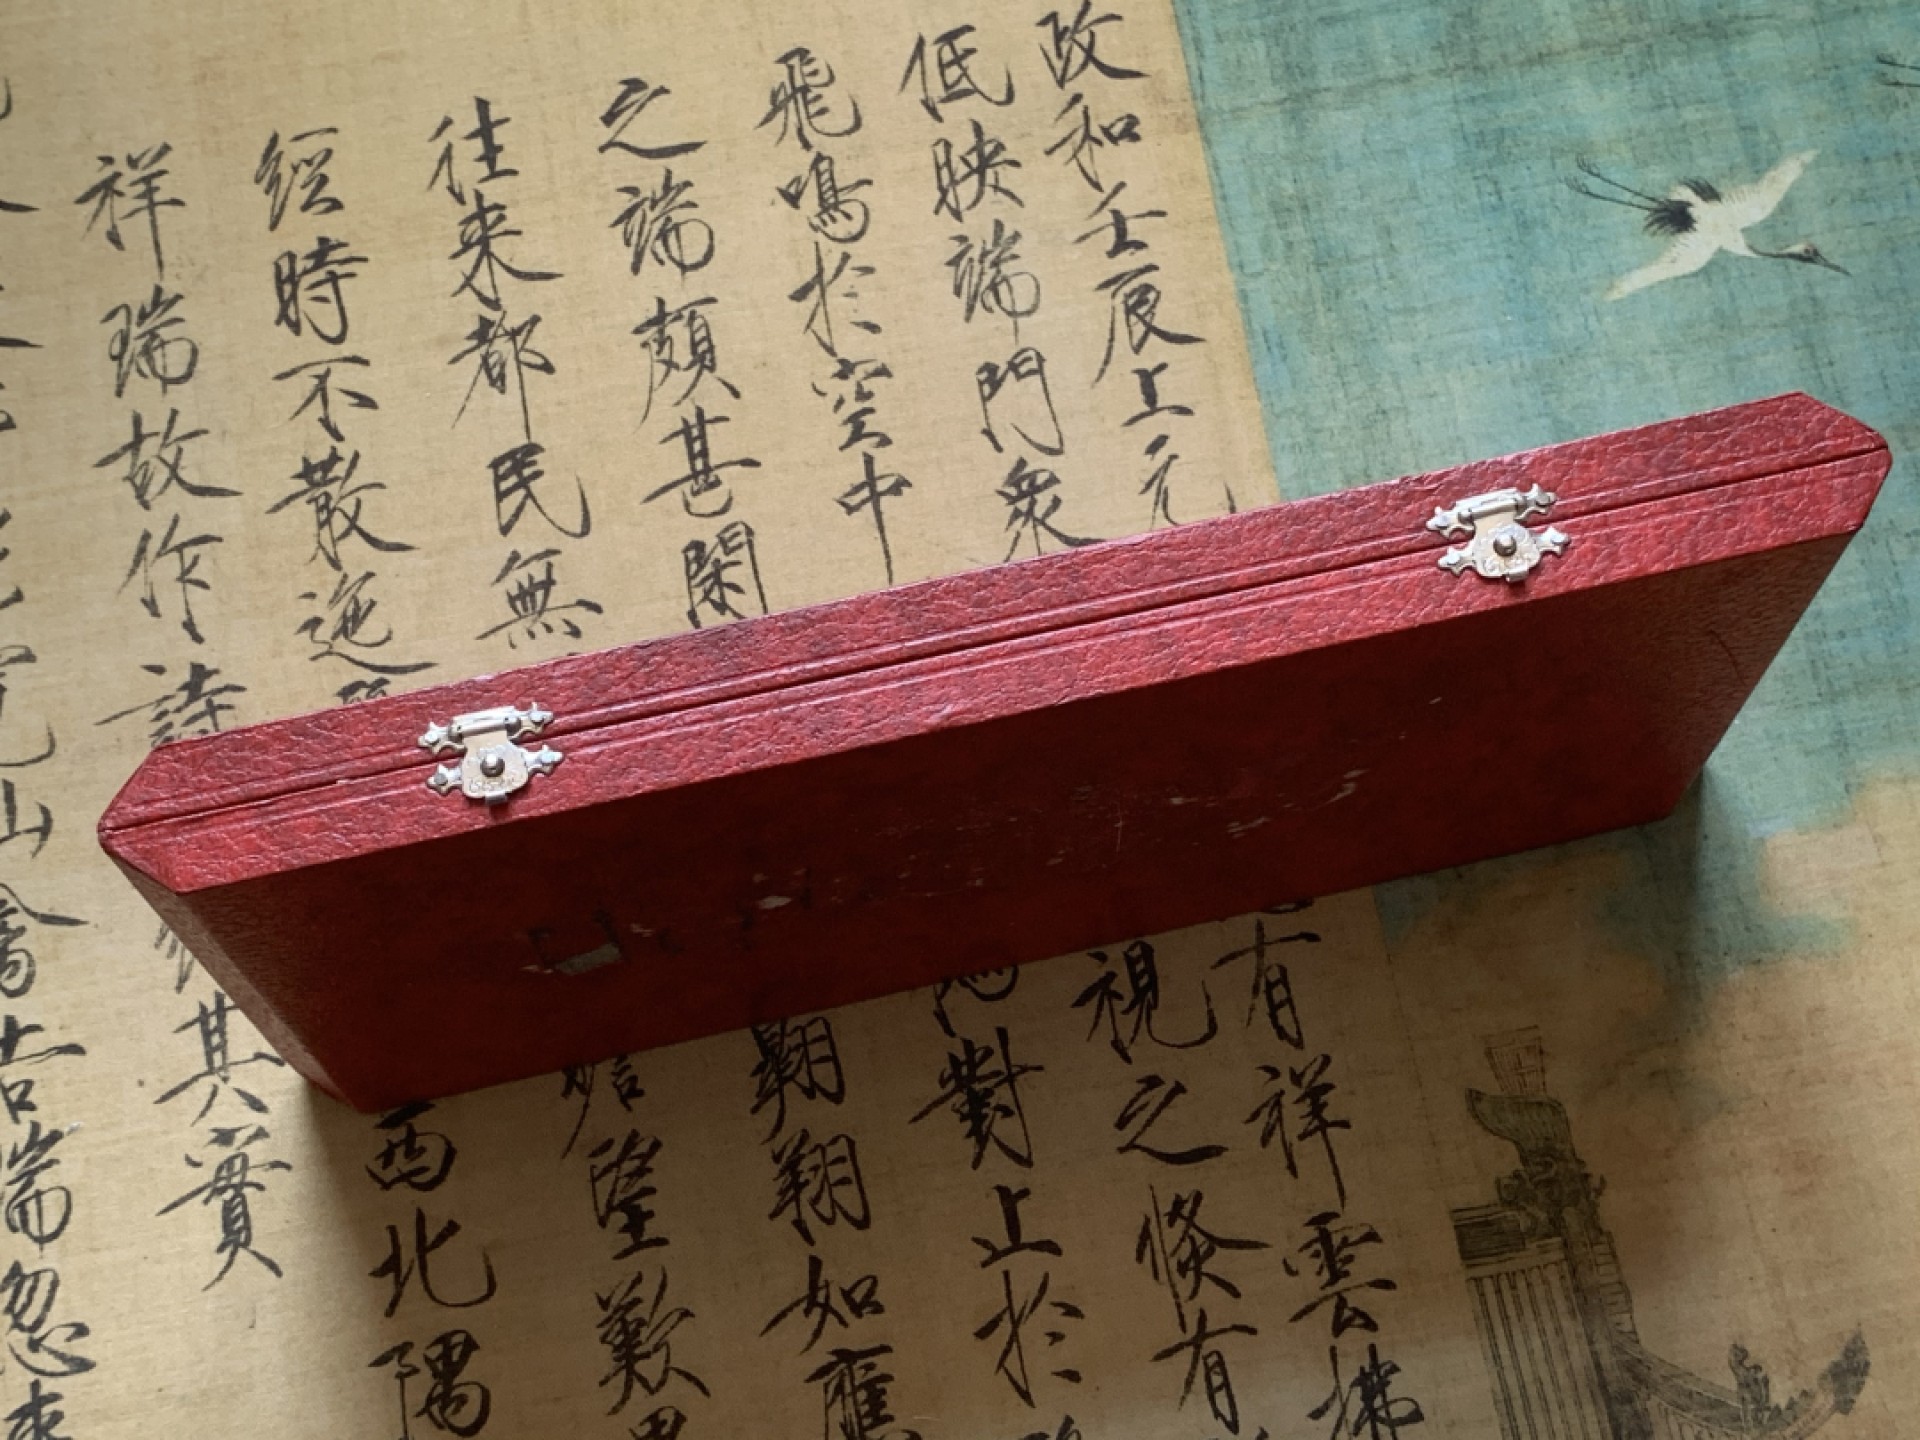 政和壬辰上元有祥雲拂
低映端門衆視之倏有
飛鳴於空中對止於
之端頗甚閑翱翔如應
往來都民無瞻望歎
經時不散迤西北隅
祥瑞故作詩其實
山禽告瑞忽來